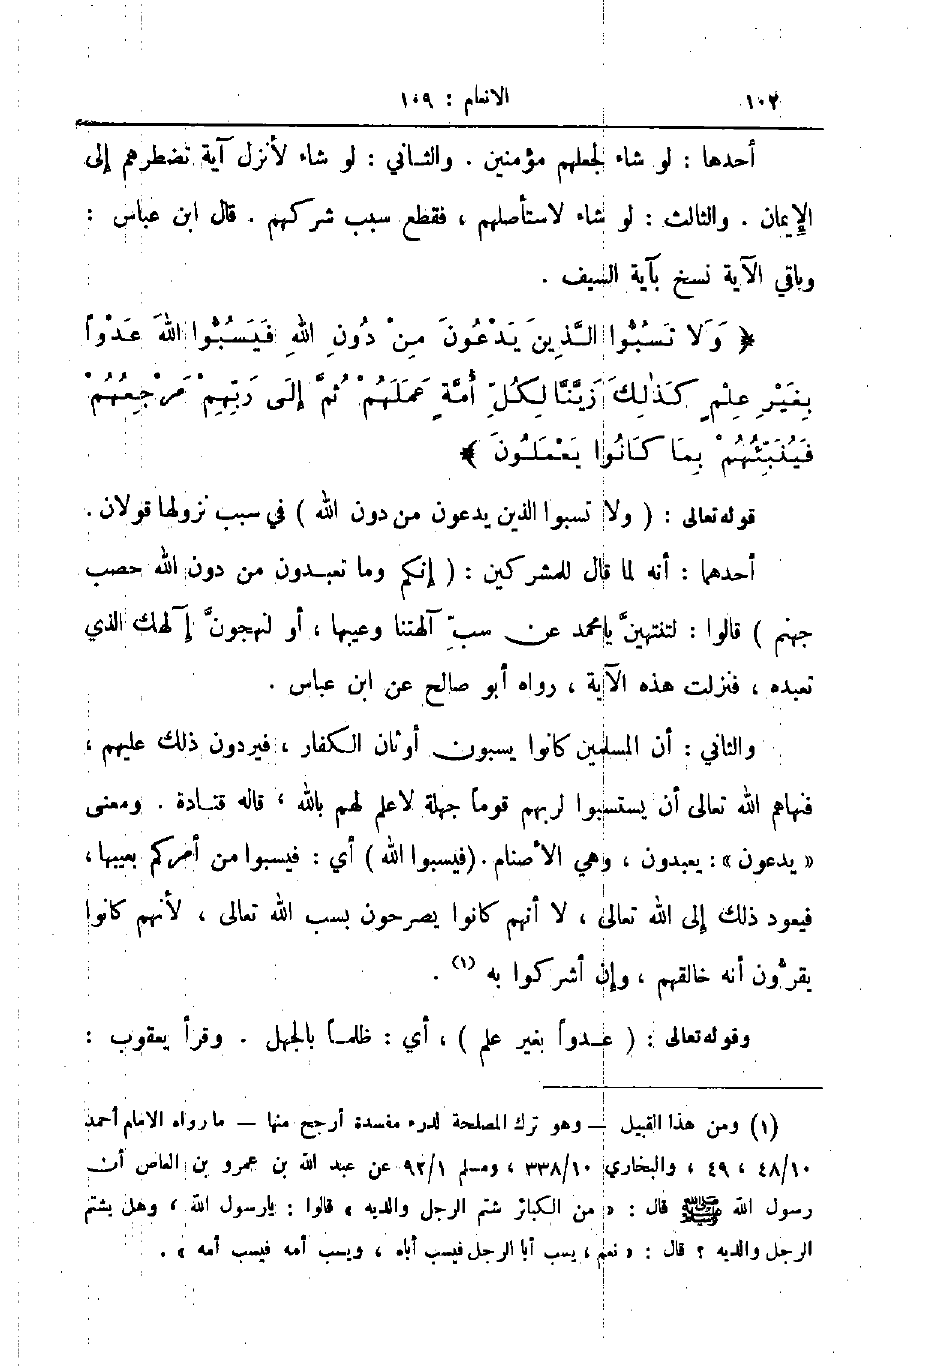 ١٠٢ الانعام : ١٠٩
أحدها : لو شاء لجعلهم مؤمنين . والثـاني : لو شاء لأنزل آية تضطرهم إلى
الإيمان . والثالث : لو شاء لاستأصلهم ، فقطع سبب شركهم . قال ابن عباس :
وباقي الآية نسخ بآية السيف .
﴿ وَلَا تَسُبُّوا الَّذِينَ يَدْعُونَ مِنْ دُونِ اللهِ فَيَسُبُّوا اللهَ عَدْواً
بِغَيْرِ عِلْمٍ كَذٰلِكَ زَيَّنَّا لِكُلِّ أُمَّةٍ عَمَلَهُمْ ثُمَّ إِلَى رَبِّهِمْ مَرْجِعُهُمْ
فَيُنَبِّئُهُمْ بِمَا كَانُوا يَعْمَلُونَ ﴾
قوله تعالى : ( ولا تسبوا الذين يدعون من دون الله ) في سبب نزولها قولان .
أحدهما : أنه لما قال للمشركين : ( إنكم وما تعبـدون من دون الله حصب
جهنم ) قالوا : لتنتهينَّ يامحمد عن سبِّ آلهتنا وعيبها ، أو لنهجونَّ إلهك الذي
تعبده ، فنزلت هذه الآية ، رواه أبو صالح عن ابن عباس .
والثاني : أن المسلمين كانوا يسبون أوثان الكفار ، فيردون ذلك عليهم ،
فنهاهم الله تعالى أن يستسبوا لربهم قوماً جهلة لاعلم لهم بالله ، قاله قتـادة . ومعنى
« يدعون » : يعبدون ، وهي الأصنام . (فيسبوا الله) أي : فيسبوا من أمركم بعيبها،
فيعود ذلك إلى الله تعالى ، لا أنهم كانوا يصرحون بسب الله تعالى ، لأنهم كانوا
يقرُّون أنه خالقهم ، وإن أشركوا به (١) .
وقوله تعالى : ( عـدواً بغير علم ) ، أي : ظلمـاً بالجهل . وقرأ يعقوب :
(١) ومن هذا القبيل — وهو ترك المصلحة لدرء مفسدة أرجح منها — مارواه الامام أحمد
٤٨/١٠ ، ٤٩ ، والبخاري ٣٣٨/١٠ ، ومسلم ٩٢/١ عن عبد الله بن عمرو بن العاص أن
رسول الله ﷺ قال : « من الكبائر شتم الرجل والديه » قالوا : يارسول الله ، وهل يشتم
الرجل والديه ؟ قال : « نعم ، يسب أبا الرجل فيسب أباه ، ويسب أمه فيسب أمه » .